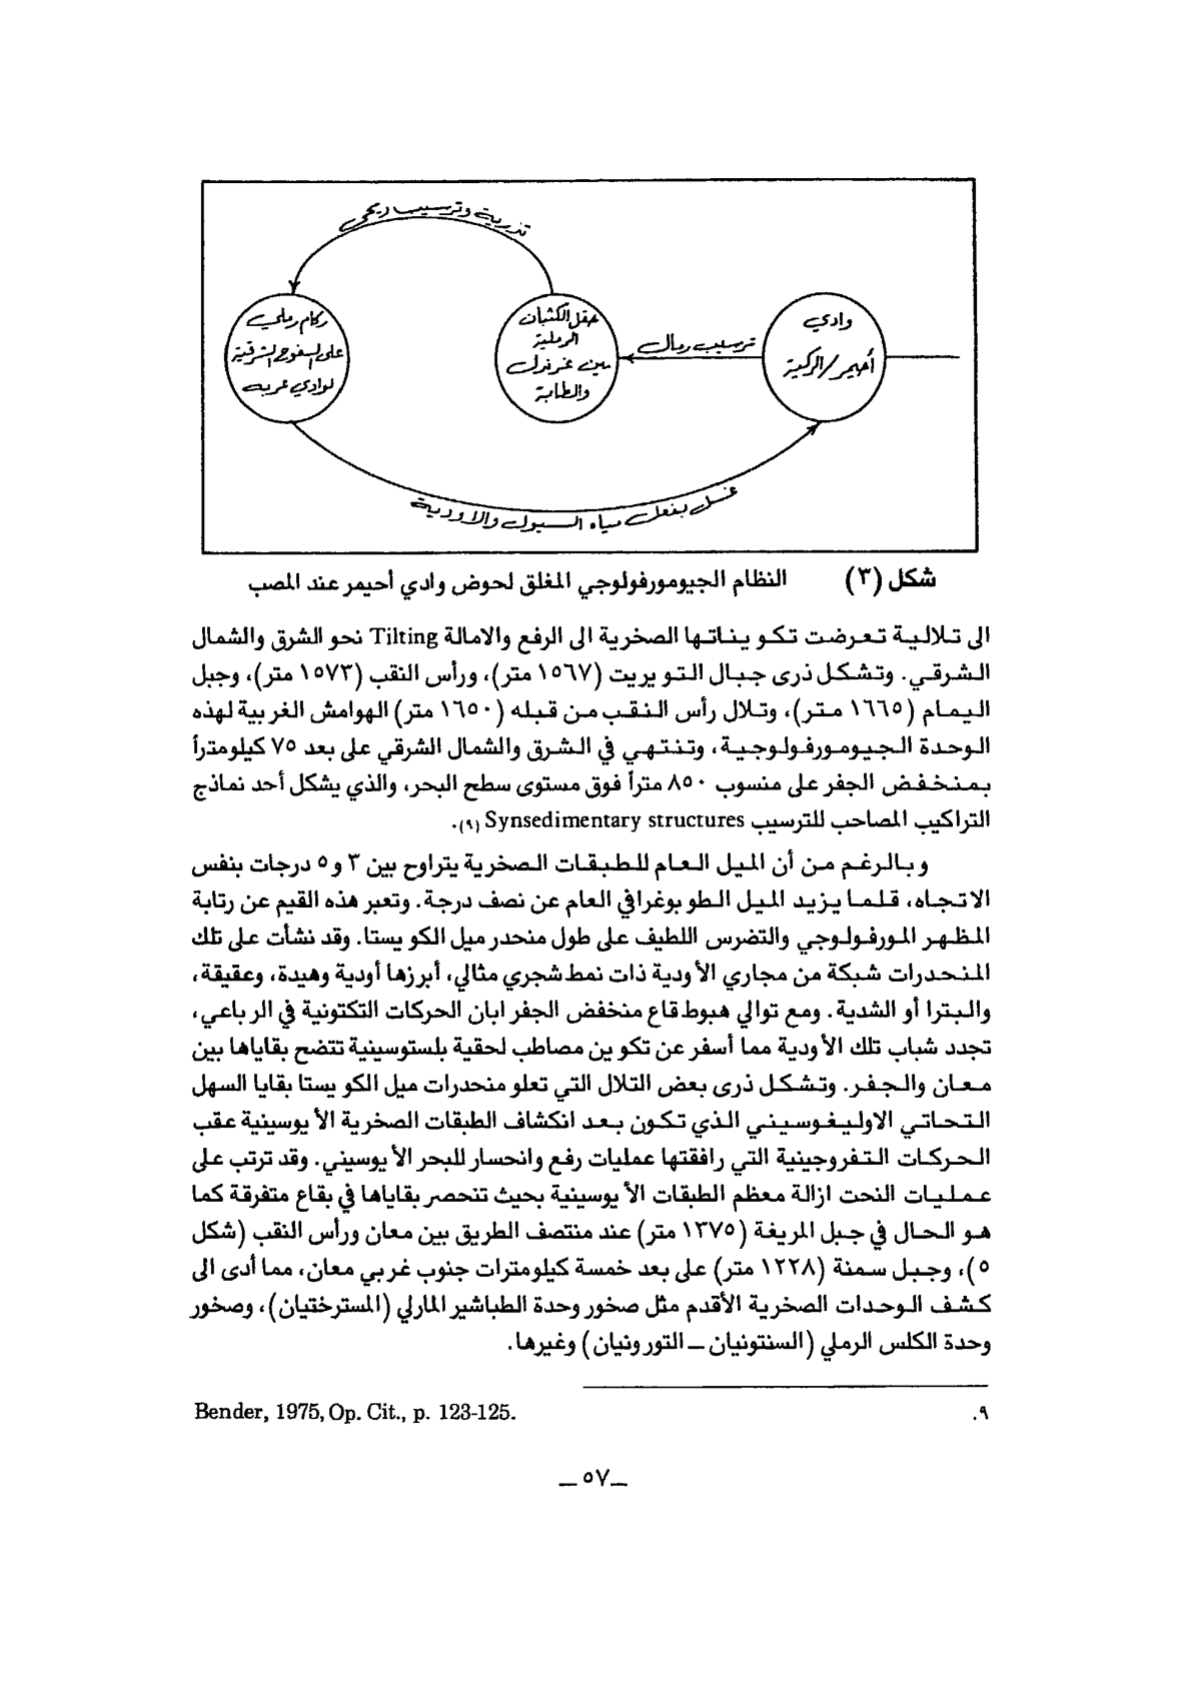 تذرية وترسيب ريحي
ركام رملي
على السفوح الشرقية
لوادي عربه
حقل الكثبان
الرملية
بين غرندل
والطابة
ترسيب رمال
وادي
أحيمر/الركية
غسل بفعل مياه السيول والاودية
شكل (٣) النظام الجيومورفولوجي المغلق لحوض وادي أحيمر عند المصب
الى تلالية تعرضت تكويناتها الصخرية الى الرفع والامالة Tilting نحو الشرق والشمال
الشرقي. وتشكل ذرى جبال التويريت (١٥٦٧ متر)، ورأس النقب (١٥٧٣ متر)، وجبل
اليمام (١٦٦٥ متر)، وتلال رأس النقب من قبله (١٦٥٠ متر) الهوامش الغربية لهذه
الوحدة الجيومورفولوجية، وتنتهي في الشرق والشمال الشرقي على بعد ٧٥ كيلومتراً
بمنخفض الجفر على منسوب ٨٥٠ متراً فوق مستوى سطح البحر، والذي يشكل أحد نماذج
التراكيب المصاحب للترسيب Synsedimentary structures (٩).
وبالرغم من أن الميل العام للطبقات الصخرية يتراوح بين ٣ و ٥ درجات بنفس
الاتجاه، قلما يزيد الميل الطوبوغرافي العام عن نصف درجة. وتعبر هذه القيم عن رتابة
المظهر المورفولوجي والتضرس اللطيف على طول منحدر ميل الكويستا. وقد نشأت على تلك
المنحدرات شبكة من مجاري الأودية ذات نمط شجري مثالي، أبرزها أودية وهيدة، وعقيقة،
والبترا أو الشدية. ومع توالي هبوط قاع منخفض الجفر ابان الحركات التكتونية في الرباعي،
تجدد شباب تلك الأودية مما أسفر عن تكوين مصاطب لحقية بلستوسينية تتضح بقاياها بين
معان والجفر. وتشكل ذرى بعض التلال التي تعلو منحدرات ميل الكويستا بقايا السهل
التحاتي الاوليغوسيني الذي تكون بعد انكشاف الطبقات الصخرية الأيوسينية عقب
الحركات التفروجينية التي رافقتها عمليات رفع وانحسار للبحر الأيوسيني. وقد ترتب على
عمليات النحت ازالة معظم الطبقات الأيوسينية بحيث تنحصر بقاياها في بقاع متفرقة كما
هو الحال في جبل المريغة (١٣٧٥ متر) عند منتصف الطريق بين معان ورأس النقب (شكل
٥)، وجبل سمنة (١٢٢٨ متر) على بعد خمسة كيلومترات جنوب غربي معان، مما أدى الى
كشف الوحدات الصخرية الأقدم مثل صخور وحدة الطباشير المارلي (المسترختيان)، وصخور
وحدة الكلس الرملي (السنتونيان – التورونيان) وغيرها.
٩. Bender, 1975, Op. Cit., p. 123-125.
– ٥٧ –